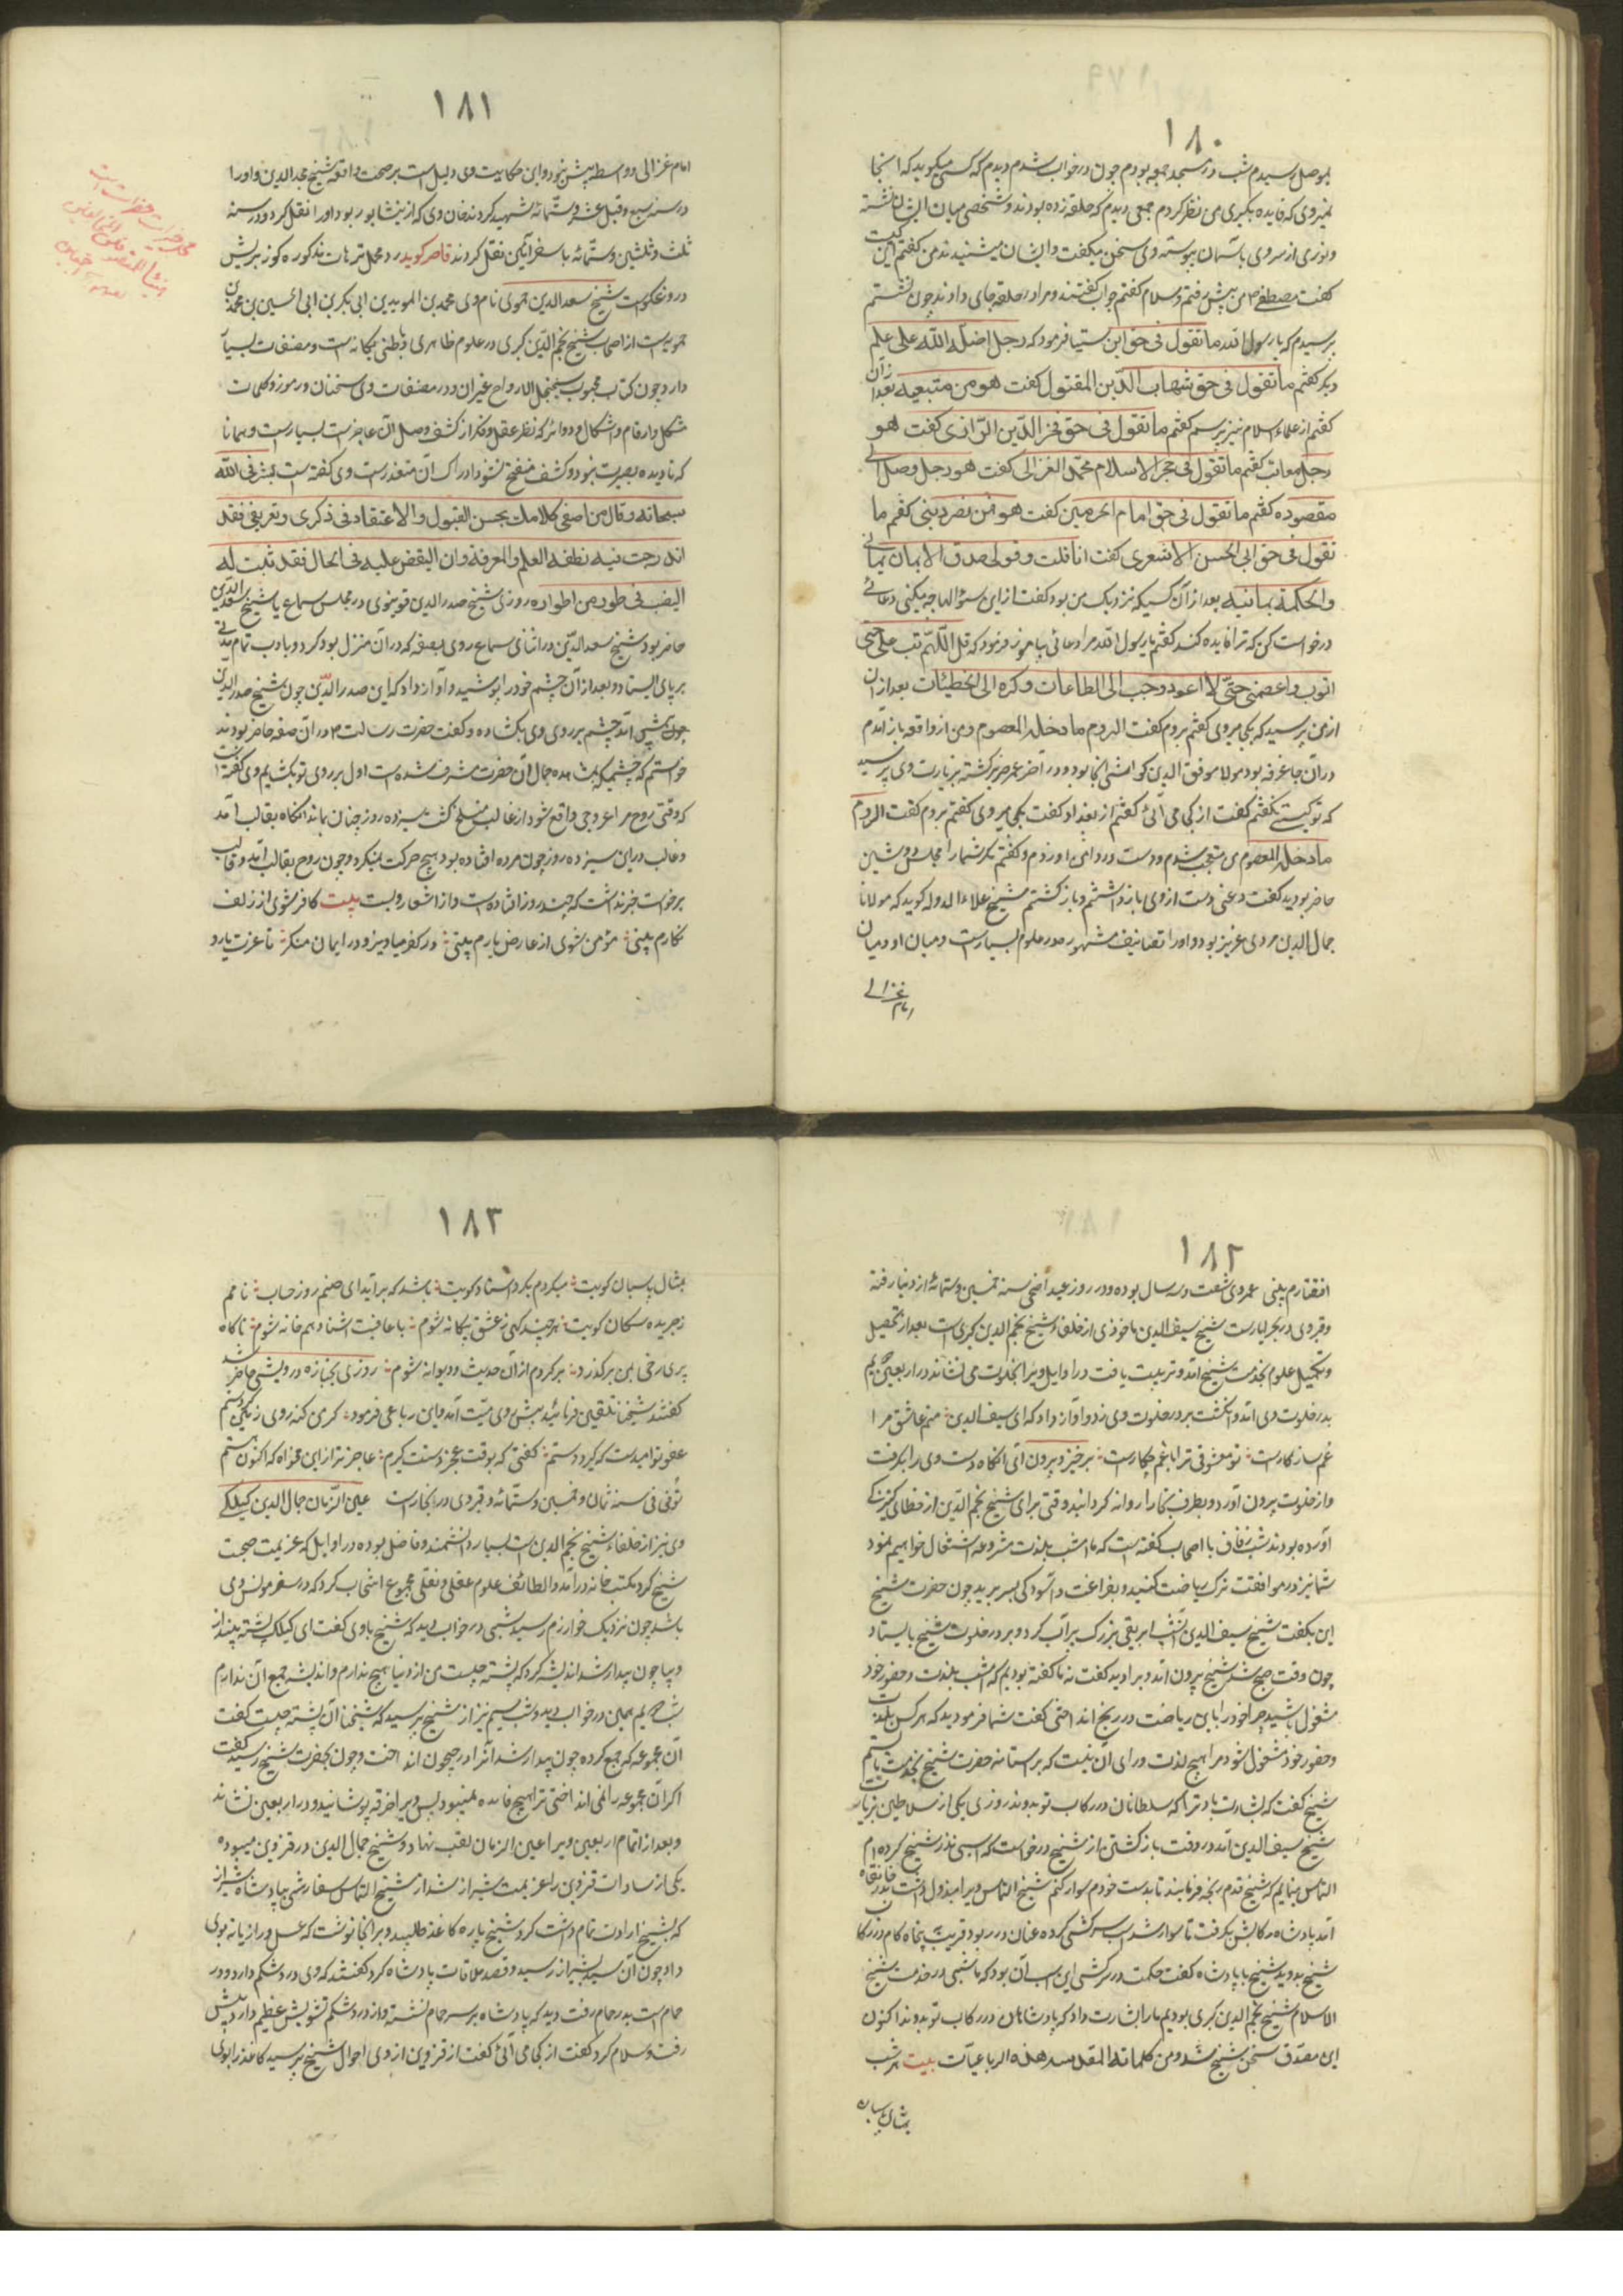 ١٨٠
بموصل رسیدم شب در مسجد جمعه بودم چون در خواب شدم دیدم که کسی میکوید که انجا
نمیروی که فایده بکیری من نظر کردم جمعی دیدم که حلقه زده بودند و شخصی میان ایشان نشسته
و نوری از سر وی باسمان پیوسته وی سخن میکفت و ایشان میشنیدند من کفتم این کیست
کفت مصطفی ص من پیش رفتم و سلام کفتم جواب کفتند و مرا در حلقه جای دادند چون نشستم
پرسیدم که یا رسول الله ما تقول فی حق ابن سینا فرمود که رجل اضله الله علی علم
دیکر کفتم ما تقول فی حق شهاب الدین المقتول کفت هو من متبعیه بعد ازان
کفتم از علماء اسلام نیز پرسم کفتم ما تقول فی حق فخر الدین الرازی کفت هو
رجل معاتب کفتم ما تقول فی حجة الاسلام محمد الغزالی کفت هو رجل وصل الی
مقصوده کفتم ما تقول فی حق امام الحرمین کفت هو ممن نصر دینی کفتم ما
تقول فی حق ابی الحسن الاشعری کفت انا قلت و قولی صدق الایمان یمانی
والحکمة یمانیه بعد از آن کسیکه نزدیک من بود کفت از این سؤالها چه میکنی دعائی
درخواست کن که ترا فایده کند کفتم یا رسول الله مرا دعائی بیاموز فرمود که قل اللهم تب علی حتی
اتوب واعصمنی حتی لا اعود وحبب الی الطاعات وکره الی الخطیئات بعد ازان
از من پرسید که بکجا میروی کفتم بروم کفت الروم ما دخله المعصوم و من از واقعه باز آمدم
در آن جا غرفه بود مولانا موفق الدین کواشی انجا بود و در آخر عمر ضریر کشته بزیارت وی پرسید
که تو کیستی بکفتم کفت از کجا می آئی کفتم از بغداد کفت بکجا میروی کفتم بروم کفت الروم
ما دخله المعصوم من متعجب شدم و دست در دامن او زدم و کفتم مکر شما را مجلس دوشین
حاضر بودید کفت دعنی دست از وی باز داشتم و باز کشتم شیخ علاء الدوله کوید که مولانا
جمال الدین مردی عزیز بود و او را تصانیف مشهور در علوم بسیارست و میان او و میان
امام غزالی
١٨١
امام غزالی دو واسطه بیش نبود و این حکایت وی دلیل است بر صحت واقعه شیخ مجد الدین و او را
در سنه سبع و قیل عشر و ستمائة شهید کردند خاتون وی که از نیشابور بود او را نقل کرد و در سنه
ثلث و ثلثین و ستمائة باسفراین نقل کردند قاصر کوید رد محل ترهات مذکوره کوزبرش
دروغکوست شیخ سعد الدین حموی نام وی محمد بن المؤید بن ابی بکر بن ابی الحسین بن محمد بن
حمویه است از اصحاب شیخ نجم الدین کبری در علوم ظاهری و باطنی یکانه است و مصنفات بسیار
دارد چون کتاب محبوب و سجنجل الارواح و غیر آن و در مصنفات وی سخنان و رموز و کلمات
مشکل و ارقام و اشکال و دوائر که نظر عقل و فکر از کشف و حل آن عاجز است بسیارست و همانا
که تا دیده بصیرت بنور کشف منفتح نشود ادراک آن متعذرست وی کفته است بشرنی الله
سبحانه وقال من اصغی کلامک بحسن القبول والاعتقاد فی ذکری وتعریفی فقد
اندرجت فیه نطفة العلم والمعرفة وان القبض علیه فی الحال فقد ثبت له
النصیب فی طور من اطواره روزی شیخ صدر الدین قونیوی در مجلس سماع با شیخ سعد الدین
حاضر بود شیخ سعد الدین در اثنای سماع روی بصفه که در آن منزل بود کرد و بادب تمام مدتی
بر پای ایستاد و بعد از آن چشم خود را پوشید و آواز داد که این صدر الدین چون شیخ صدر الدین
چون پیش آمد چشم بر روی وی بکشاد و کفت حضرت رسالت ص در آن صفه حاضر بودند
خواستم که چشمی که بمشاهده جمال آن حضرت مشرف شده است اول بر روی تو بکشایم وی کفته است
که وقتی روح مرا عروجی واقع شود از قالب منسلخ کشت سیزده روز چنان بماند انکاه بقالب آمد
و قالب در این سیزده روز چون مرده افتاده بود هیچ حرکت نمیکرد و چون روح بقالب آمد و قالب
برخواست خبر نداشت که چند روز افتاده است و از اشعار ویست بیت کافر شوی از زلف
نکارم بینی مؤمن شوی از عارض یارم بینی در کفر میاویز و در ایمان منکر تا عزت یار و
١٨٢
افتقارم بینی عمر وی شصت و سه سال بوده و در روز عید اضحی سنه خمسین و ستمائة از دنیا رفته
و قبر وی در بحرابادست شیخ سیف الدین باخرزی از خلفاء شیخ نجم الدین کبری است بعد از تحصیل
و تکمیل علوم بخدمت شیخ آمد و تربیت یافت در اوایل ویرا بخلوت می نشاند در اربعین دویم
بدر خلوت وی آمد و انکشت بر در خلوت وی زد و آواز داد که ای سیف الدین منم عاشق مرا
غم سازکارست تو معشوقی ترا با غم چکارست برخیز و بیرون آی انکاه دست وی را بکرفت
و از خلوت بیرون آورد و بطرف بخارا روانه کردانید وقتی برای شیخ نجم الدین از خطا کنیزکی
آورده بودند شب زفاف با اصحاب کفته است که ما امشب بلذت مشروعه اشتغال خواهیم نمود
شما نیز در موافقت ترک ریاضت کنید و بفراغت و آسودکی بسر برید چون حضرت شیخ
این بکفت شیخ سیف الدین آنشب ابریقی بزرک پر آب کرد و بر در خلوت شیخ بایستاد
چون وقت صبح شد شیخ بیرون آمد و مر او را دید کفت نه ما کفته بودیم که امشب بلذت و حضور خود
مشغول باشید چرا خود را باین ریاضت در رنج انداختی کفت شما فرمودید که هر کس بلذت
و حضور خود مشغول شود مرا هیچ لذت ورای آن نیست که بر آستانه حضرت شیخ بخدمت بایستم
شیخ کفت که بشارت باد ترا که سلطانان در رکاب تو بدوند روزی یکی از سلاطین بزیارت
شیخ سیف الدین آمد در وقت باز کشتن از شیخ درخواست که اسبی نذر شیخ کرده ام
التماس مینمایم که شیخ قدم رنجه فرمایند تا بدست خودم سوار کنم شیخ التماس ویرا مبذول داشت بدر خانقاه
آمد پادشاه رکابش بکرفت تا سوار شد اسب سرکشی کرده عنان در ربود قریب پنجاه کام در رکاب
شیخ بدوید شیخ با پادشاه کفت حکمت در سرکشی این اسب آن بود که ما شبی در خدمت شیخ
الاسلام شیخ نجم الدین کبری بودیم ما را بشارت داد که پادشاهان در رکاب تو بدوند اکنون
این مصدق سخن شیخ شد و من کلماته المقدسه هذه الرباعیات بیت هر شب
بمثال پاسبان
١٨٣
بمثال پاسبان کویت میکردم بکرد استاد کویت باشد که برآید ای صنم روز حساب نامم
ز جریده سکان کویت هر چند کهی ز عشق بیکانه شوم با عافیت آشنا و هم خانه شوم ناکاه
پری رخی بمن برکذرد برکردم از آن حدیث و دیوانه شوم روزی بجنازه درویشی حاضر شد
کفتند شیخنا تلقین فرمائید پیش روی میت آمد و این رباعی فرمود کر من کنه روی زمین کردستم
عفو تو امیدست که کیرد دستم کفتی که بوقت عجز دستت کیرم عاجزتر از این مخواه که اکنون هستم
توفی فی سنه ثمان و خمسین و ستمائه و قبر وی در بخارست عین الزمان جمال الدین کیلکی
وی نیز از خلفاء شیخ نجم الدین است بسیار دانشمند و فاضل بوده در اوایل که عزیمت صحبت
شیخ کرد بکتبخانه در آمد و از لطائف علوم عقلی و نقلی مجموع انتخاب کرد که در سفر مونس وی
باشد چون نزدیک خوارزم رسید شبی در خواب دید که شیخ با وی کفت ای کیلک پشته بینداز
و بیا چون بیدار شد اندیشه کرد که پشته چیست من از دنیا هیچ ندارم و اندیشه جمع آن ندارم
شب دویم همین در خواب دید و شب سیم نیز از شیخ پرسید که شیخنا آن پشته چیست کفت
آن مجموعه که جمع کرده چون بیدار شد آنرا در جیحون انداخت و چون بحضرت شیخ رسید کفت
اکر آن مجموعه را نمی انداختی ترا هیچ فایده نمیبود پس ویرا خرقه پوشانید و در اربعین نشاند
و بعد از اتمام اربعین ویرا عین الزمان لقب نهاد و شیخ جمال الدین در قزوین میبوده
یکی از سادات قزوین را عزیمت شیراز شد از شیخ التماس سفارشی بپادشاه شیراز
که بشیخ ارادت تمام داشت کرد شیخ پاره کاغذ طلبید و بر انجا نوشت که عسل و رازیانه بوی
داد چون آن سید بشیراز رسید و قصد ملاقات پادشاه کرد کفتند که وی درد شکم دارد و در
حمام است بدر حمام رفت دید که پادشاه بر سر حمام نشسته و از درد شکم تشویش عظیم دارد پیش
رفت و سلام کرد کفت از کجا می آئی کفت از قزوین از وی احوال شیخ پرسید کاغذ را بوی